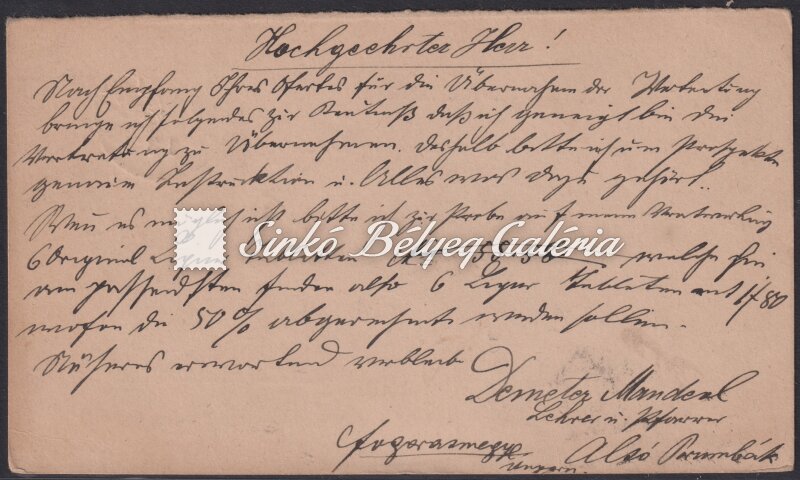 Hochgeehrter Herr!
Nach Empfang Ihres Ofertes für die Übernahme der Vertretung
bringe ich folgendes zur Kentniß daß ich geneigt bin die
Vertretung zu Übernehmen. Deshalb bitte ich um Prospekte
genaue Instruktion u. Alles was dazu gehört.
Wen es möglich ist bitte ich zur Probe auf meine
6 Original welche Sie
am passendsten finden also 6 Tabletten mit 1 f 80
wofon die 50% abgerechnet werden sollen.
Näheres erwartend verbleibe
Demeter Mandeal
Lehrer u. Pfarrer
Fogarasmegye Alsó Porumbák
Ungarn.
Sinkó Bélyeg Galéria